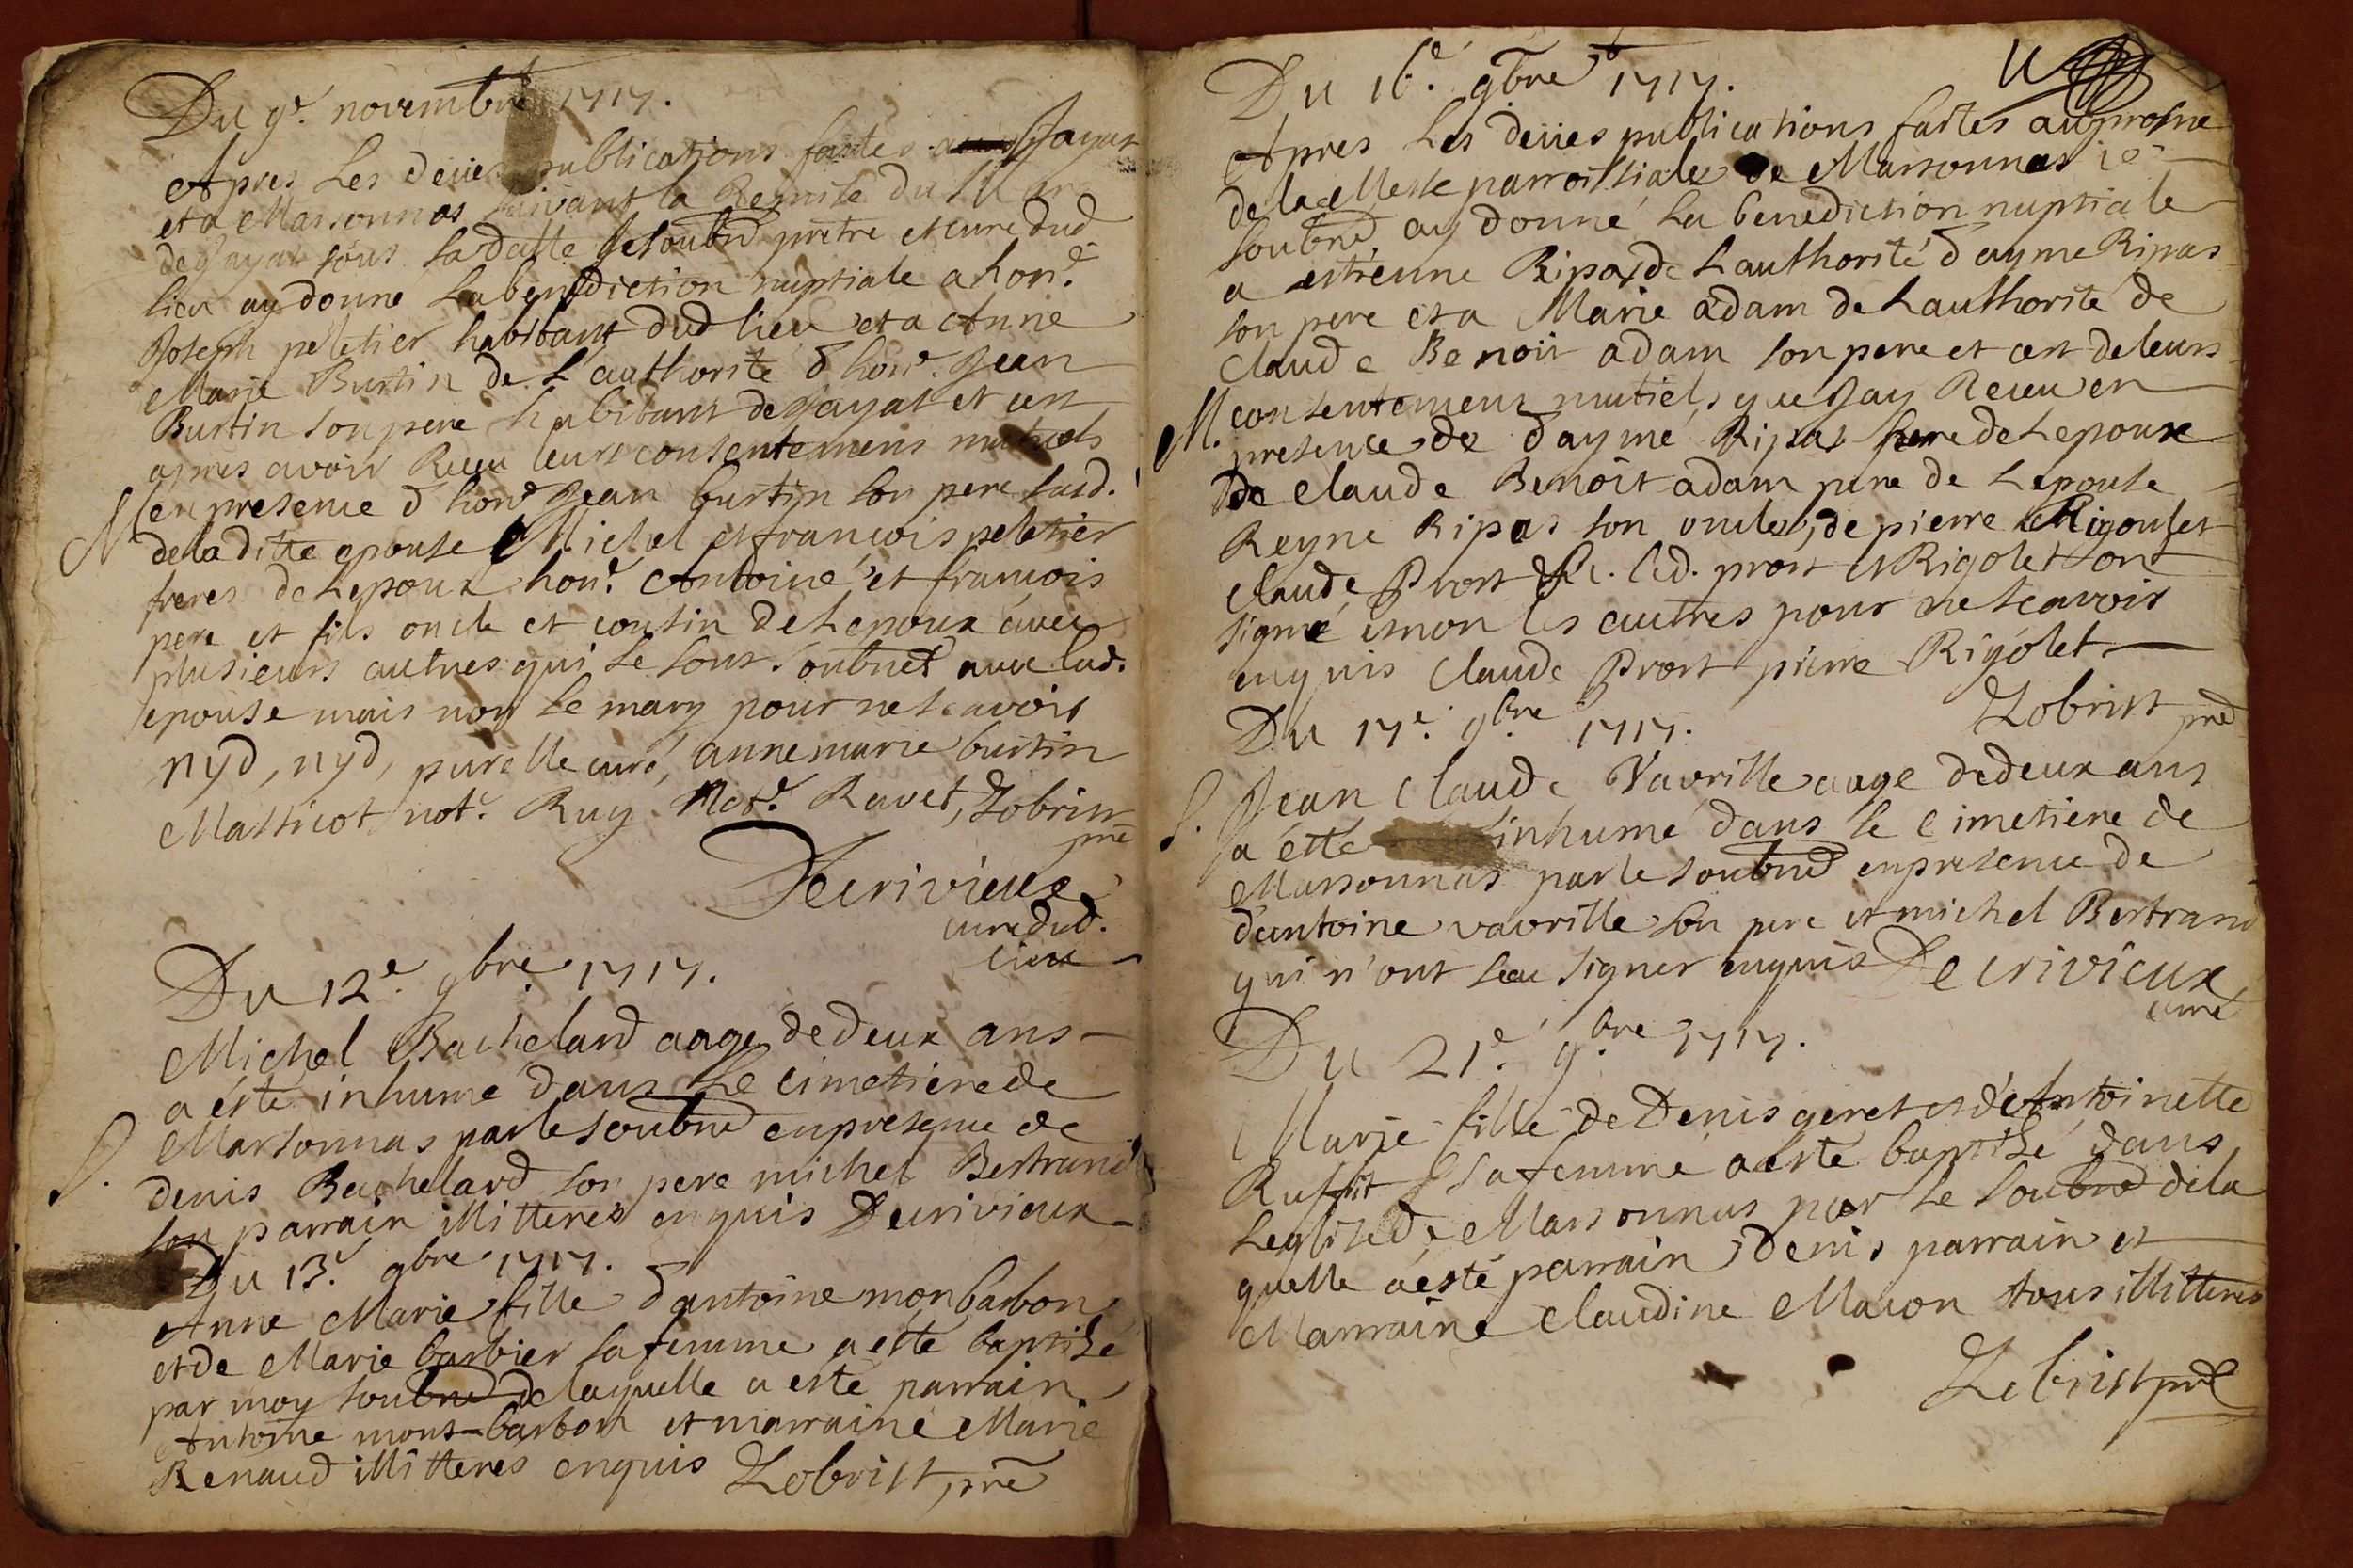 Du 9e. novembre 1717.
Apres Les deües publications faites a Jayat
et a Marsonnas suivant la Remise du Sr
de Jayat sous sa datte Je soubné prêtre et curé dud
lieu ay donne La benediction nuptiale a hone.
Joseph peletier habitant dud lieu et a Anne
Marie Burtin de L'authorité d hone. Jean
Burtin son pere habitant de Jayat et cest
apres avoir Receu leurs consentemens mutuels
M en presence d hone Jean burtin son pere susd.
de la ditte epouse Michel et francois peletier
freres de Lepoux hone. Antoine et francois
pere et fils oncle et cousin de Lepoux avec
plusieurs autres qui se sont soubnes avec lad.
epouse mais non le mary pour ne scavoir
nyd, nyd, curé, anne marie burtin
Massicot notr. Ruy Notr. Ravet, Zobrist
pre
Decrivieux
curé dud.
lieu
Du 12e. 9bre 1717.
Michel Bachelard aage de deux ans
a esté inhume dans Le cimetiere de
S. Marsonnas par le soubné en presence de
denis Bachelard son pere michel Bertrand
son parrain illitteres enquis Decrivieux
Du 13e. 9bre 1717.
Anne Marie fille d antoine monbarbon
et de Marie barbier sa femme a esté baptisé
par moy soubné de laquelle a esté parrain
Antoine mont-barbon et marraine Marie
Renaud illitteres enquis Zobrist, pre
Du 16e. 9bre 1717.
Apres Les deües publications faites au prosne
de la Messe parroissiale de Marsonnas je
soubné ay donné La benediction nuptiale
a estienne Ripas de L authorité d ayme Ripas
son pere et a Marie adam de L authorité de
Claude Benoit adam son pere et cest de leurs
M. consentemens mutuels que Jay Receu en
presence de d'aymé Ripas pere de Lepoux
de claude Benoit adam pere de Lepouse
Reyne Ripas son oncle, de pierre Rigoulet
claude Prost &c. Led. prost et Rigolet ont
signé et non les autres pour ne scavoir
enquis Claude Prost pierre Rigolet
Zobrist pre
Du 17e. 9bre 1717.
S. Jean Claude Vavrille aage de deux ans
a etté inhumé dans le cimetiere de
Marsonnas par le soubné en presence de
d'antoine vavrille son pere et michel Bertrand
qui n'ont sceu signer enquis Decrivieux
curé
Du 21e. 9bre 1717.
Marie fille de Denis geret et de Antoinette
Ruffit sa femme a esté baptisé dans
Leglise de Marsonnas par le soubné de la
quelle a esté parrain Denis parrain et
Marraine Claudine Macon tous illitteres
Zobrist pre